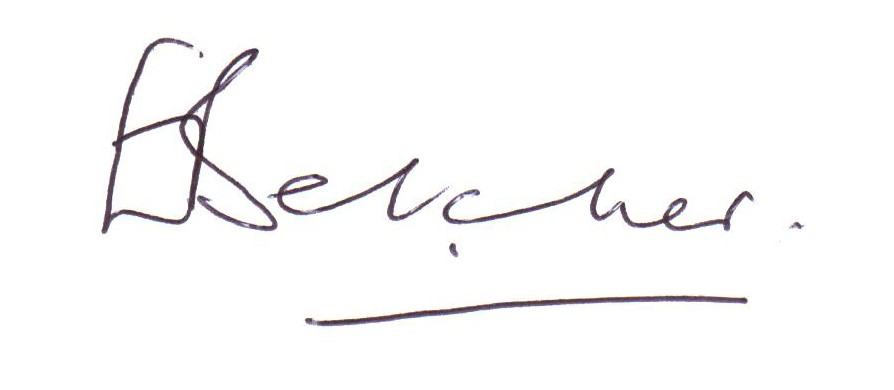 E Belcher.